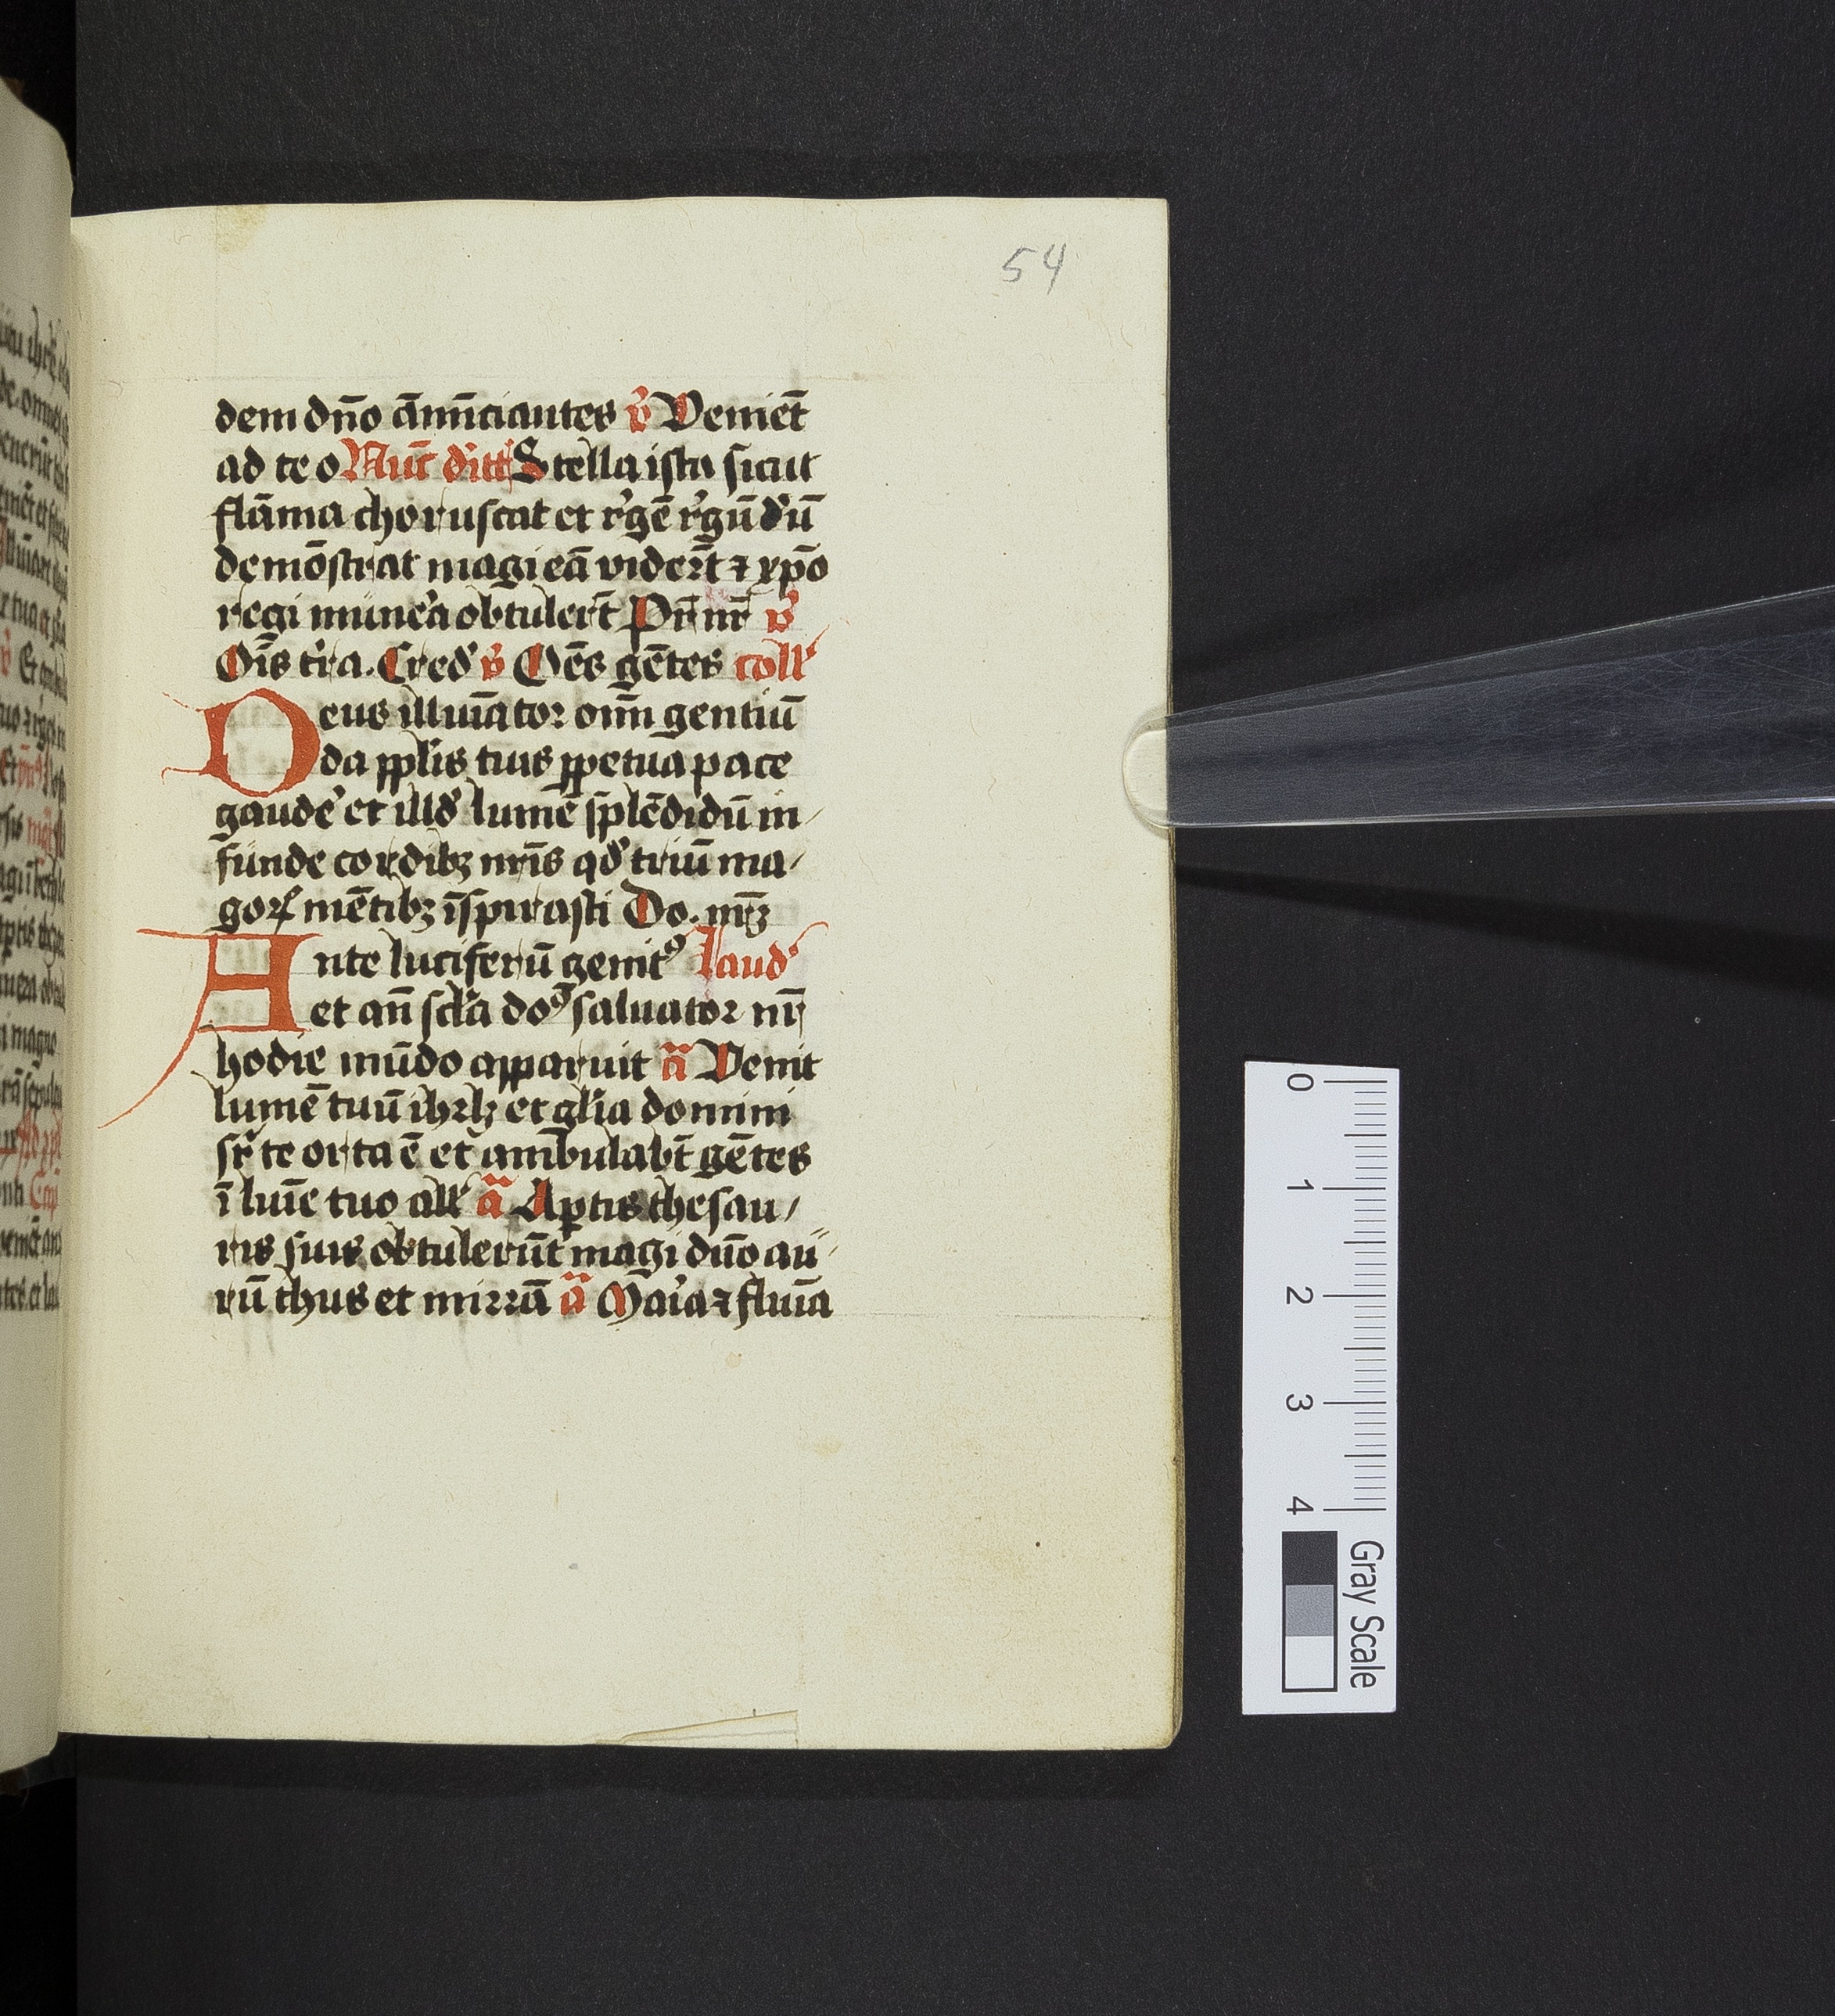 54
dem dn̄o ān̄nciantes v̄ Veniēt
ad te o Nūc dītt Stella ista sicut
flām̄a choruscat et r̉gē r̉gū d̉ū
demōstrat magi eā vider̄t ⁊ xp̄o
regi mūnera obtuler̄t Pr̄ nr̄ v̄
Oīs tr̉a. Cred̉ v̄ Oēs gētes coll̉
Deus illuīator om̄ gentiū
da ꝑplis̄ tuis ꝑpetua pace
gaudē et illd̉ lumē splēdidū in
funde cordibꝫ nrīs qd̉ triū ma
goꝝ mētibꝫ īspirasti Do. nrꝫ̄
Ante luciferū genitꝰ laud̉
et an̄ scl̉a doꝰ saluator nr̄
hodie mūdo apparuit ā Venit
lumē tuū ihrlꝫ et gl̉ia domini
sr̉ te orta ē et ambulabt̄ gētes
ī luīe tuo all̉ ā Aꝑtis thesau
ris suis obtulerūt magi dn̄o au
rū thus et mirrā ā Mar̉ia ⁊ fluīa
0
1
2
3
4
Gray Scale